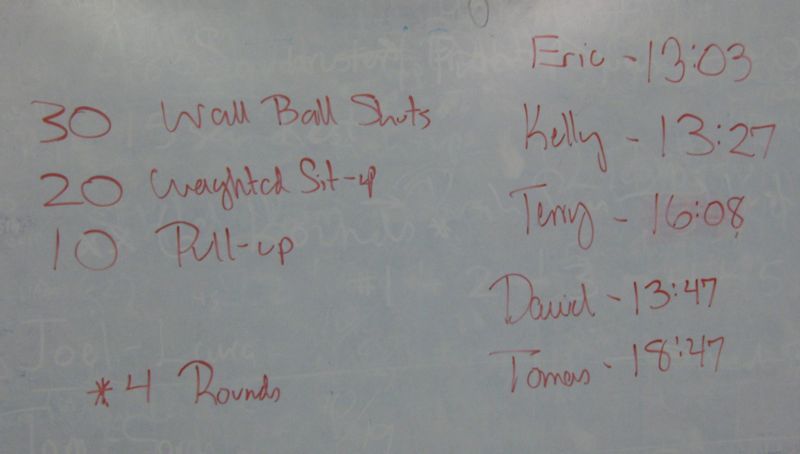 30 Wall Ball Shots
20 Weighted Sit-up
10 Pull-up
*4 Rounds
Eric - 13:03
Kelly - 13:27
Terry - 16:08
David - 13:47
Tomas - 18:47
Joel -